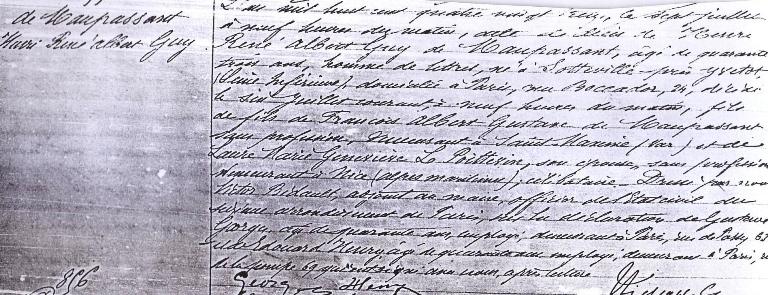 de Maupassant
Henri René Albert Guy
L'an mil huit cent quatre vingt treize, le sept juillet
à neuf heures du matin, acte de décès de Henri
René Albert Guy de Maupassant, âgé de quarante
trois ans, homme de lettres, né à Sotteville près Yvetot
(Seine Inférieure), domicilié à Paris, rue Boccador, 24, décédé
le six juillet courant à neuf heures du matin, fils
de François Albert Gustave de Maupassant
sans profession, demeurant à Sainte Maxime (Var) et de
Laure Marie Geneviève Le Poittevin, son épouse, sans profession
demeurant à Nice (Alpes maritimes); célibataire. Dressé par nous
Victor Bidault, adjoint au maire, officier de l'Etat civil du
seizième arrondissement de Paris, sur la déclaration de Gustave
âgé de quarante ans, employé, demeurant à Paris, rue de Passy,
Henry, âgé de employé, demeurant à Paris,
de la Pompe qui ont signé avec nous, après lecture
896
Henry